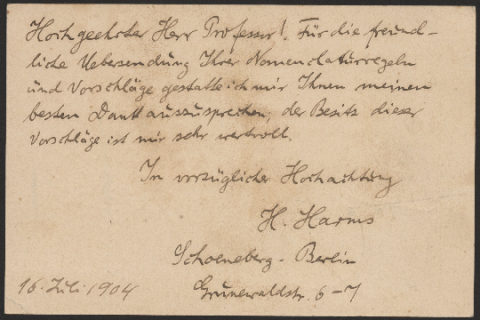 Hochgeehrter Herr Professor! Für die freund-
liche Uebersendung Ihrer Nomenclaturregeln
und Vorschläge gestatte ich mir Ihnen meinen
besten Dank auszusprechen; der Besitz dieser
Vorschläge ist mir sehr wertvoll.
In vorzüglicher Hochachtung
H. Harms
Schoeneberg - Berlin
16. Juli 1904 Grunewaldstr. 6-7